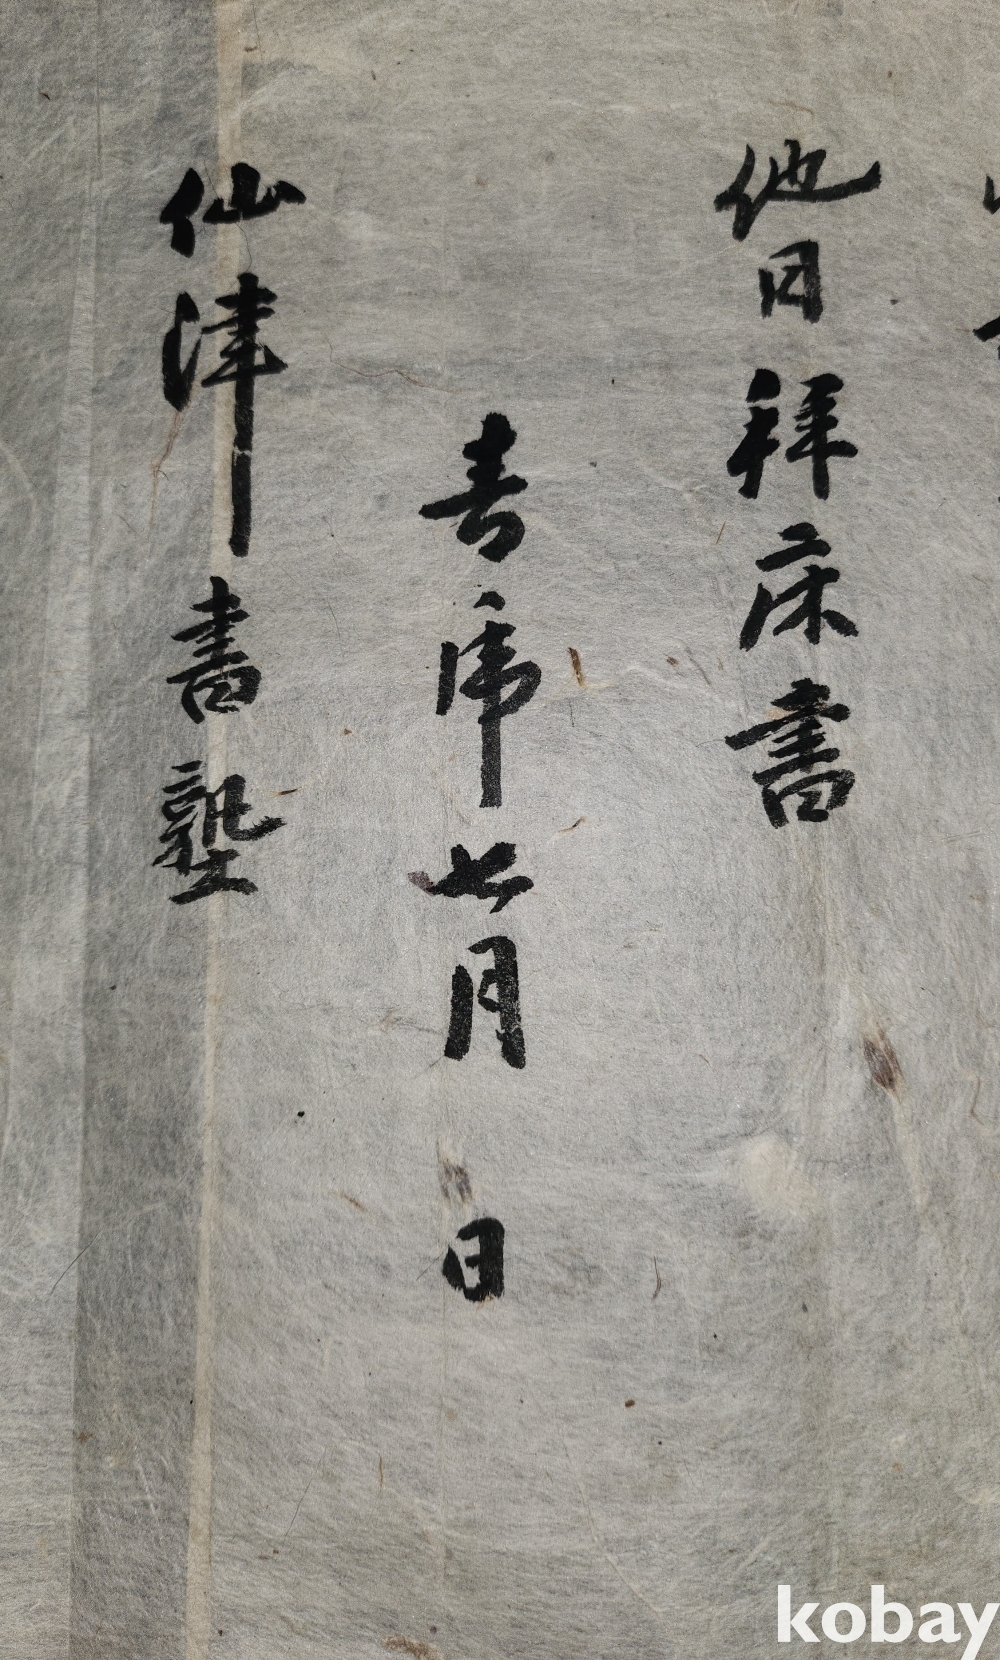 他日拜床書
青虎七月 日
仙津書塾
kobay